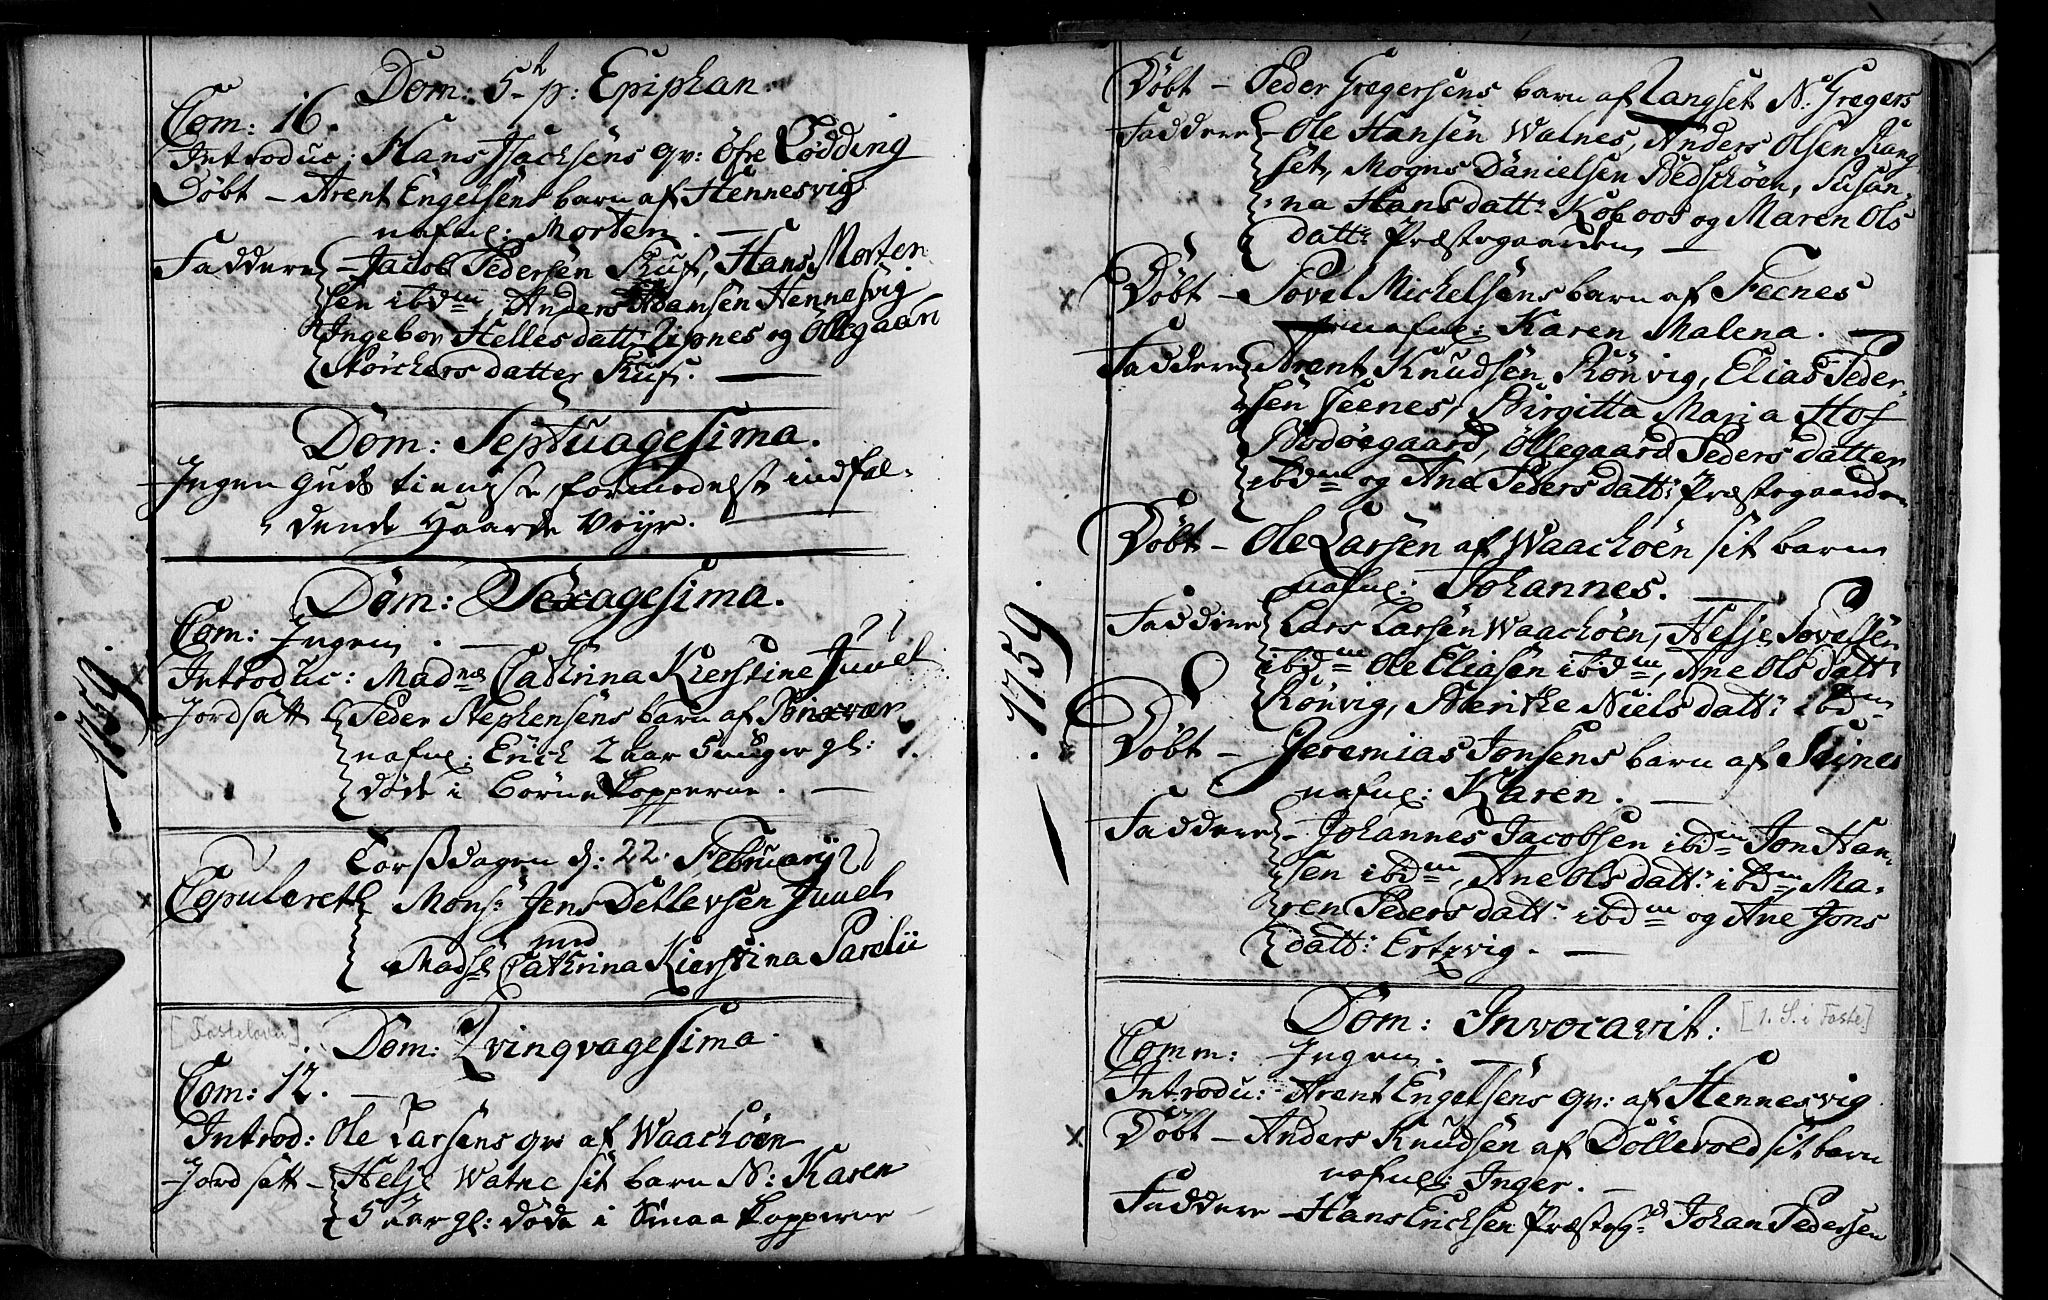 1759.
Dom: 5te p: Epiphan:
Com: 16.
Introduc: Hans Jsachsens qv: Öfre Lødding
Döbt - Arent Engelsens barn af Hennesvig
nafnl: Morten. -
Faddere - Jacob Pedersen Kuf, Hans Morten
sen ibdm Anders Hansen Hennesvig
Ingebor Hellesdatt: og Ollegaard
Størchers datter Kuf.
Dom: Septuagesima.
Ingen Guds tieniste, formedelst indfal-
dende Haarde Veyr.
Dom: Sexagesima.
Com: Ingen. -
Introduc: Madme Cathrina Kierstine Juuel
Jordsatt Peder Stephensens barn af
nafnl: Erich 2 aar 5 uger gl:
døde i Börnekopperne. -
Torsdagen d: 22. Februarij
Copuleret Mons: Jens Detlevsen Juuel
med
Madse Cathrina Kierstina Parelii
[Fastelavn]
Dom: Qvinqvagesima.
Com: 12. -
Introd: Ole Larsens qv: af Waachöen
Jordsatt - Helje Watne sit barn N: Karen
5 aar gl: döde i Smaa Kopperne
1759.
Döbt - Peder Gregersens barn af Langset N: Gregers
Faddere - Ole Hansen Walnes, Anders Olsen Lang
set, Mogns Danielsen Bedschöen, Susan-
na Hansdatt: Koboos og Maren Ols
datt: Præstegaarden -
Döbt - Povel Michelsens barn af Feenes
nafnl: Karen Malena. -
Faddere Arent Knudsen Rönvig, Elias Peder
sen Feenes, Birgitta Maria Hof
Bodöegaard, Ollegaard Pedersdatter
ibdm og Ane Pedersdatt: Præstegaarden
Döbt - Ole Larsen af Waachöen sit barn
nafnl: Johannes. -
Faddere Lars Larsen Waachöen, Helje Povelsen
ibdm Ole Eliasen ibidm, Ane Olsdatt:
Rönvig, Berithe Nielsdatt: ibdm
Döbt - Jeremias Jonsens barn af Seines
nafnl: Karen. -
Faddere - Johannes Jacobsen ibidm Jon Han-
sen ibdm, Ane Olsdatt: ibdm Ma-
ren Pedersdatt: ibdm og Ane Jons
datt: Ertzvig. -
Dom: Invocavit: [1. S. i Faste]
Comm: Ingen. -
Introdu: - Arent Engelsens qv: af Hennesvig
Döbt - Anders Knudsen af Döllevold sit barn
nafnl: Inger. -
Faddere - Hans Erichsen Præstegd Johan Pedersen